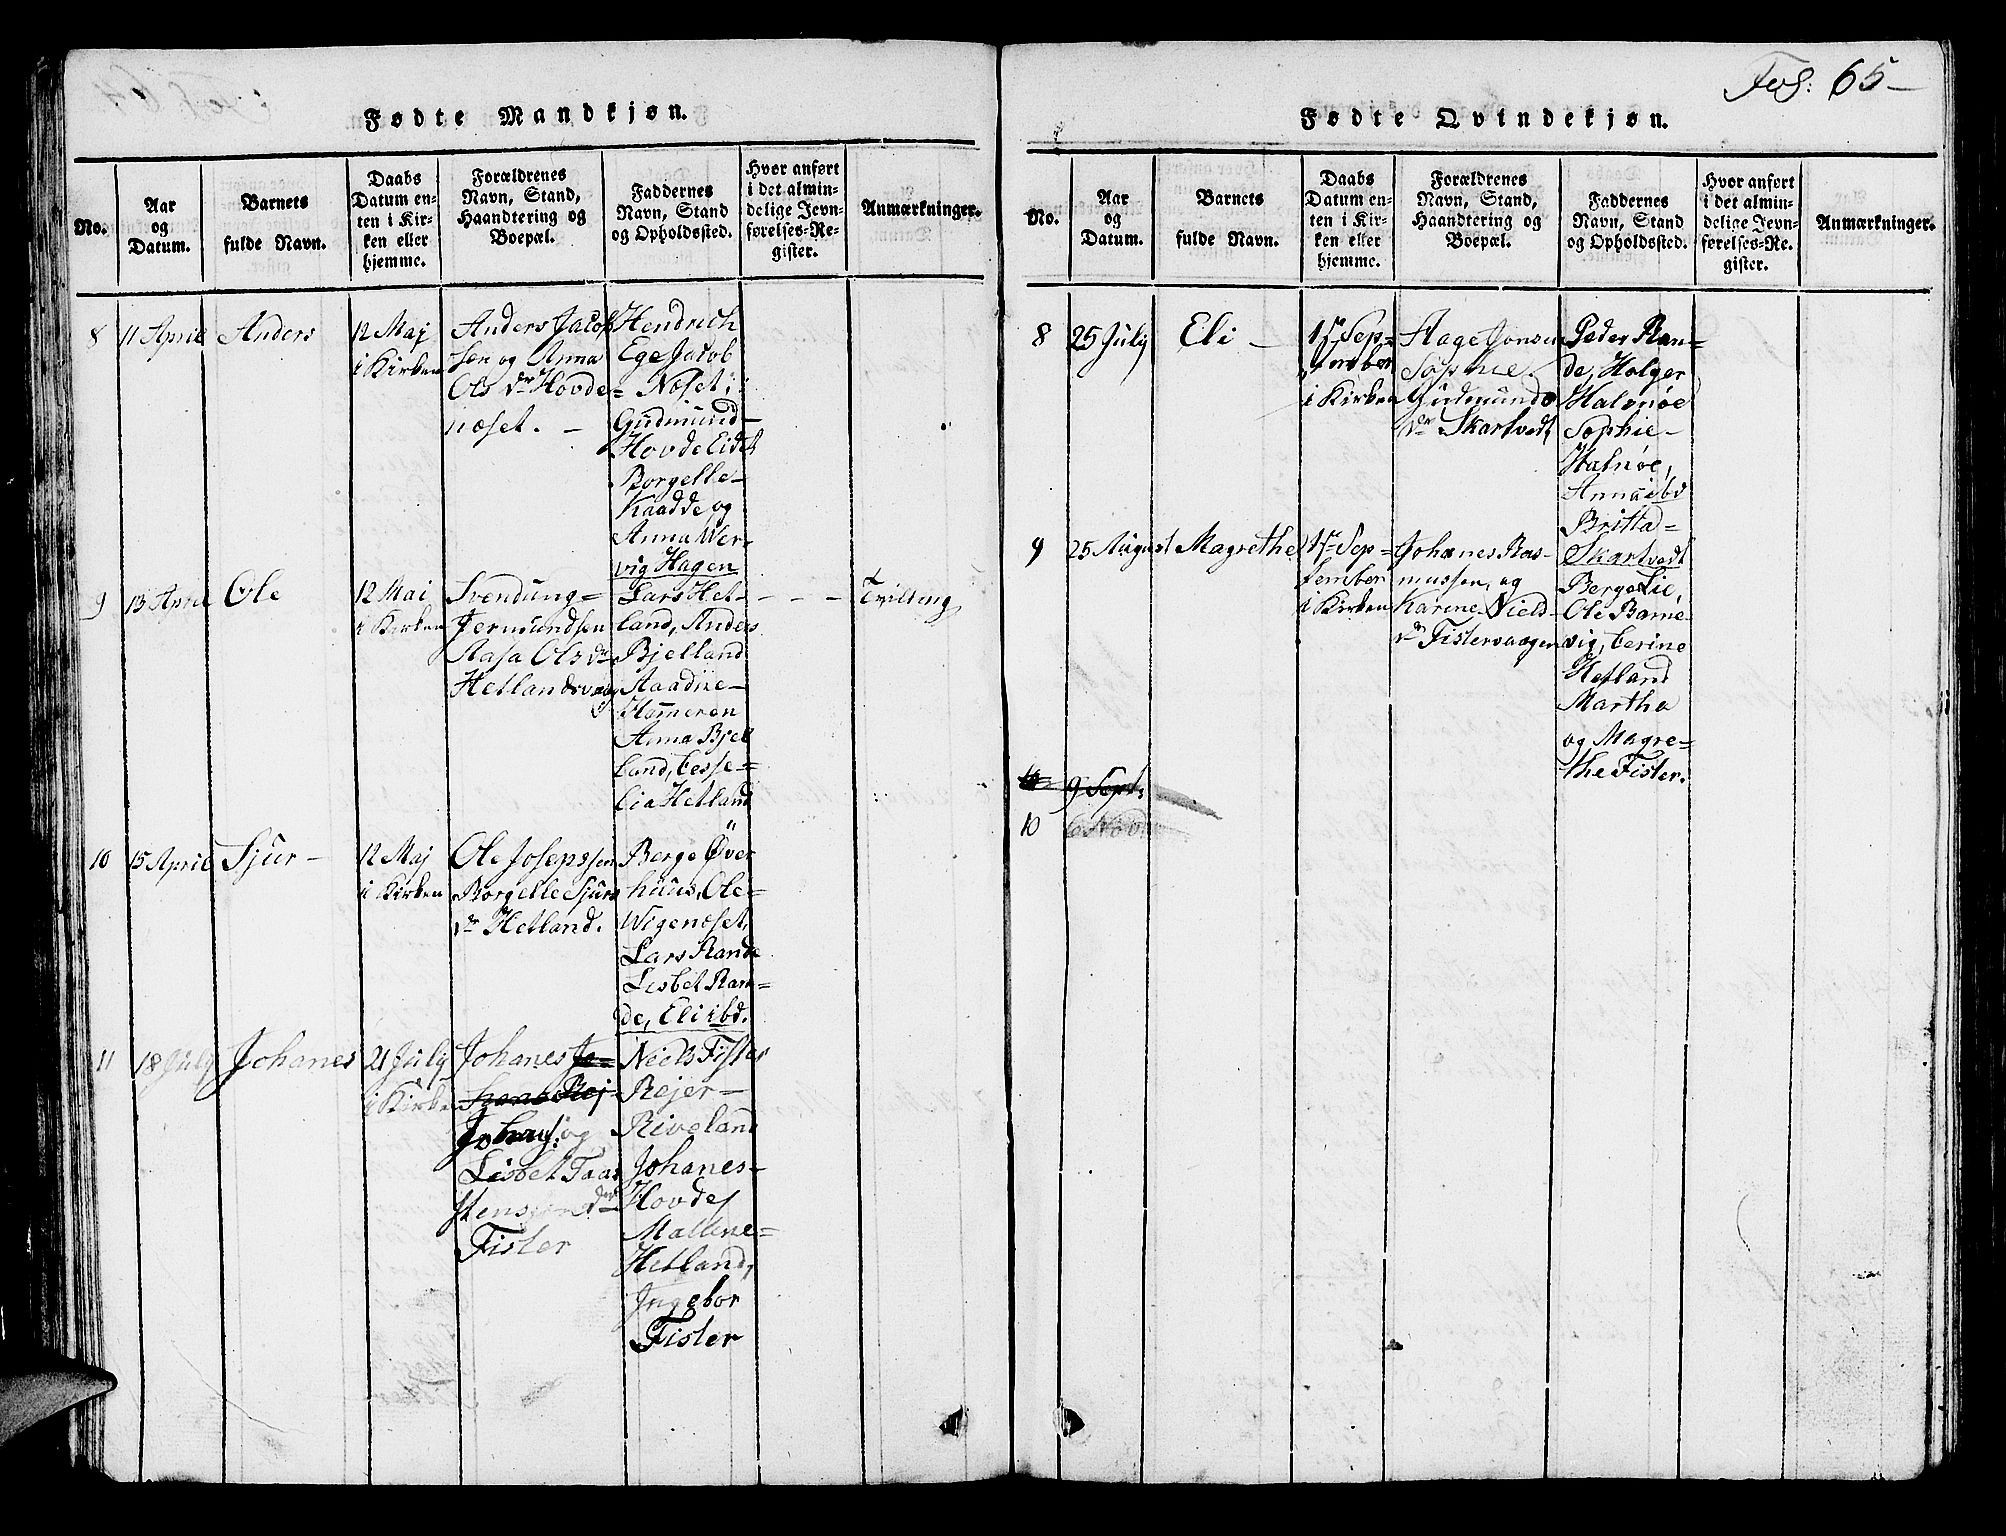 Fol: 65-
Fødte Mandkjøn.
No.
Aar
og
Datum.
Barnets
fulde Navn.
Daabs
Datum en-
ten i Kir-
ken eller
hjemme.
Forældrenes
Navn, Stand,
Haandtering og
Boepæl.
Faddernes
Navn, Stand
og Opholdssted.
Hvor anført
i det almin-
delige Jevn-
førelses-Re-
gister.
Anmærkninger.
8
11 April
Anders
12 Maj
i Kirken
Anders Jacob
sen og Anna
Ols dr Hovde-
næset. -
Hendrich
Ege Jacob
= Næset ;
Gudmund-
Hovde Eidet
Borgelle-
Kaadde og
Anna Wer-
vig Hagen
9
13 April
Ole
12 Mai
i Kirken
Svendung=
Jermundsen
Aasa Ols dr
Hetlandsvaag
Lars Het-
land, Anders
Bjelland
Aadne-
Hameren
Anna Bjel
land, Cesse=
lia Hetland
Tvilling
10
15 April
Sjur -
12 Maj
i Kirken
Ole Josepssen
Borgelle Sjurs
dr Hetland.
Berge Över
huus, Ole-
Wigenæset,
Lars Rande
Lisbet Ran=
de, Eli ibd.
11
18 July
Johanes
21 July
i Kirken
Johanes Jo=
Johans: og
Lisbet Taar
stensen dr
Fister
Niels Fister
Rejer-
Riveland
Johanes-
Hovdej
Mallene=
Hetland,
Ingebor
Fister
Fødte Qvindekjøn.
No.
Aar
og
Datum.
Barnets
fulde Navn.
Daabs
Datum en-
ten i Kir-
ken eller
hjemme.
Forældrenes
Navn, Stand,
Haandtering og
Boepæl.
Faddernes
Navn, Stand
og Opholdssted.
Hvor anført
i det almin-
delige Jevn-
førelses-Re-
gister.
Anmærkninger.
8
25 July
Eli -
1ste Sep=
tember
i Kirken
Aage Jonsen
Sophie
Gudmunds
dr Skartvedt
Peder Ran=
de, Holger
Halnøe
Sophie-
Halnøe,
Anna ibd
Britta=
Skartvedt
9
25 August
Magrethe
1ste Sep=
tember
i Kirken
Johanes Ras-
mussen, og
Karine Niels-
dr Fistervaagen
Berge Lie,
Ole Barne-
vig, Cerine
Hetland
Martha
og Magre=
the Fister.
10
9 Sept:
10
6 Nov